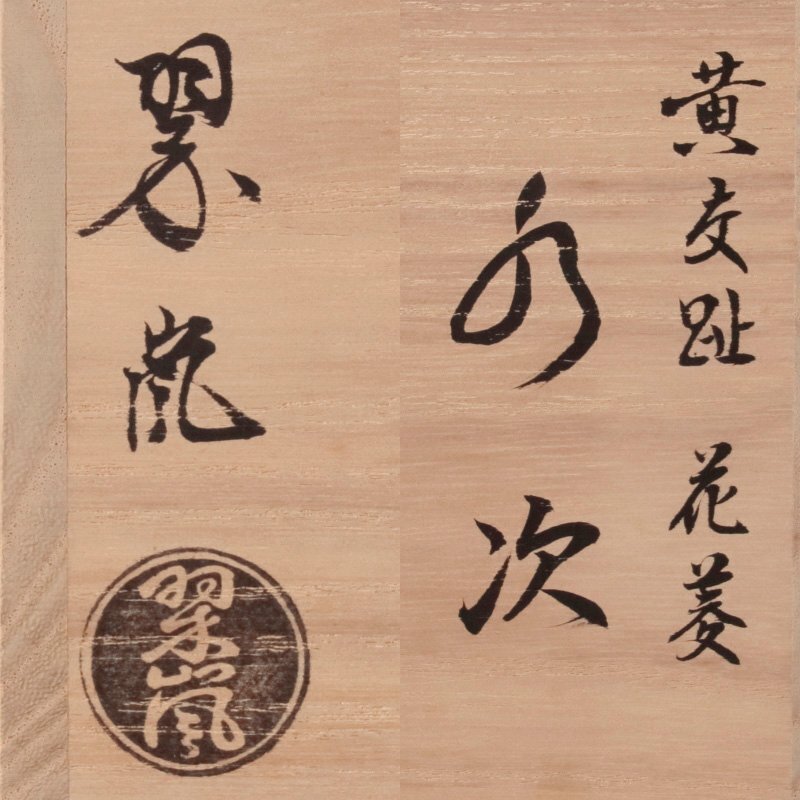 黄交趾 花菱
水次
翠嵐
翠嵐